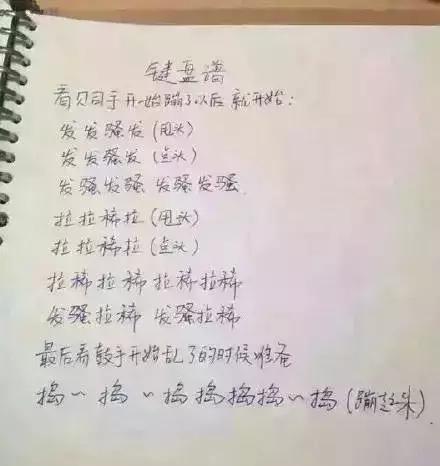 键盘谱
看贝司手开始蹦了以后就开始：
发发骚发（甩头）
发发骚发（点头）
发骚发骚 发骚发骚
拉拉稀拉（甩头）
拉拉稀拉（点头）
拉稀拉稀 拉稀拉稀
发骚拉稀 发骚拉稀
最后看鼓手开始乱了的时候准备
捣~ 捣 ~ 捣捣捣捣~捣（蹦起来）